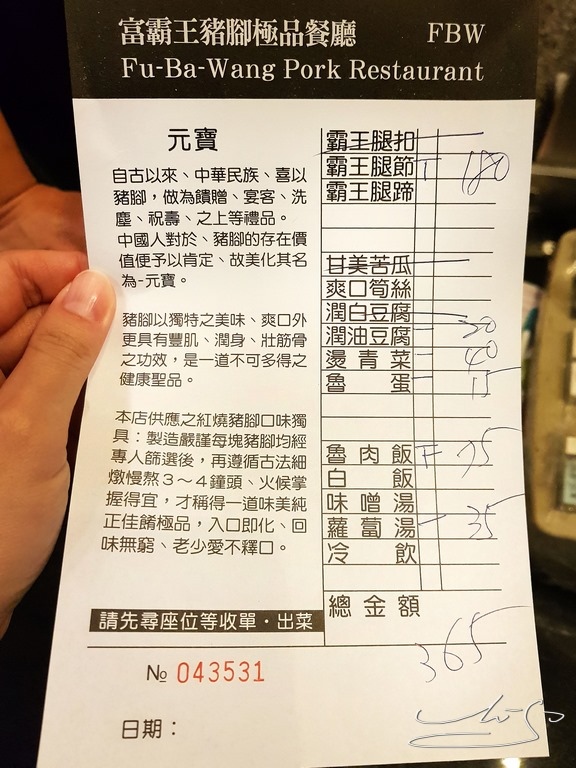 富霸王豬腳極品餐廳 FBW
Fu-Ba-Wang Pork Restaurant
元寶
自古以來、中華民族、喜以
豬腳，做為饋贈、宴客、洗
塵、祝壽、之上等禮品。
中國人對於、豬腳的存在價
值便予以肯定、故美化其名
為-元寶。
豬腳以獨特之美味、爽口外
更具有豐肌、潤身、壯筋骨
之功效，是一道不可多得之
健康聖品。
本店供應之紅燒豬腳口味獨
具：製造嚴謹每塊豬腳均經
專人篩選後，再遵循古法細
燉慢熬3～4鐘頭、火候掌
握得宜，才稱得一道味美純
正佳餚極品，入口即化、回
味無窮、老少愛不釋口。
請先尋座位等收單·出菜
№ 043531
日期：
霸王腿扣
霸王腿節 180
霸王腿蹄
甘美苦瓜
爽口筍絲
潤白豆腐
潤油豆腐
燙青菜 40
魯蛋 15
魯肉飯
白飯
味噌湯
蘿蔔湯 35
冷飲
總金額
365